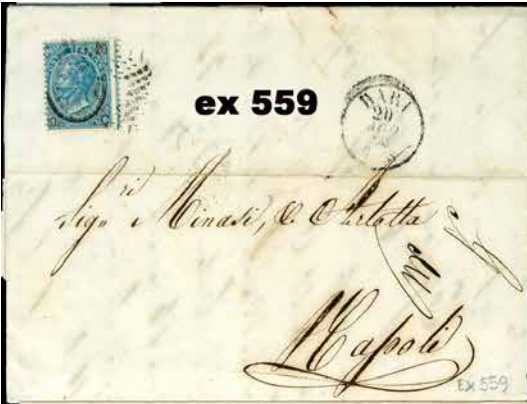 ex 559
BARA
20
Sig.ri Minasi, & Arlotta
Napoli
EX 559